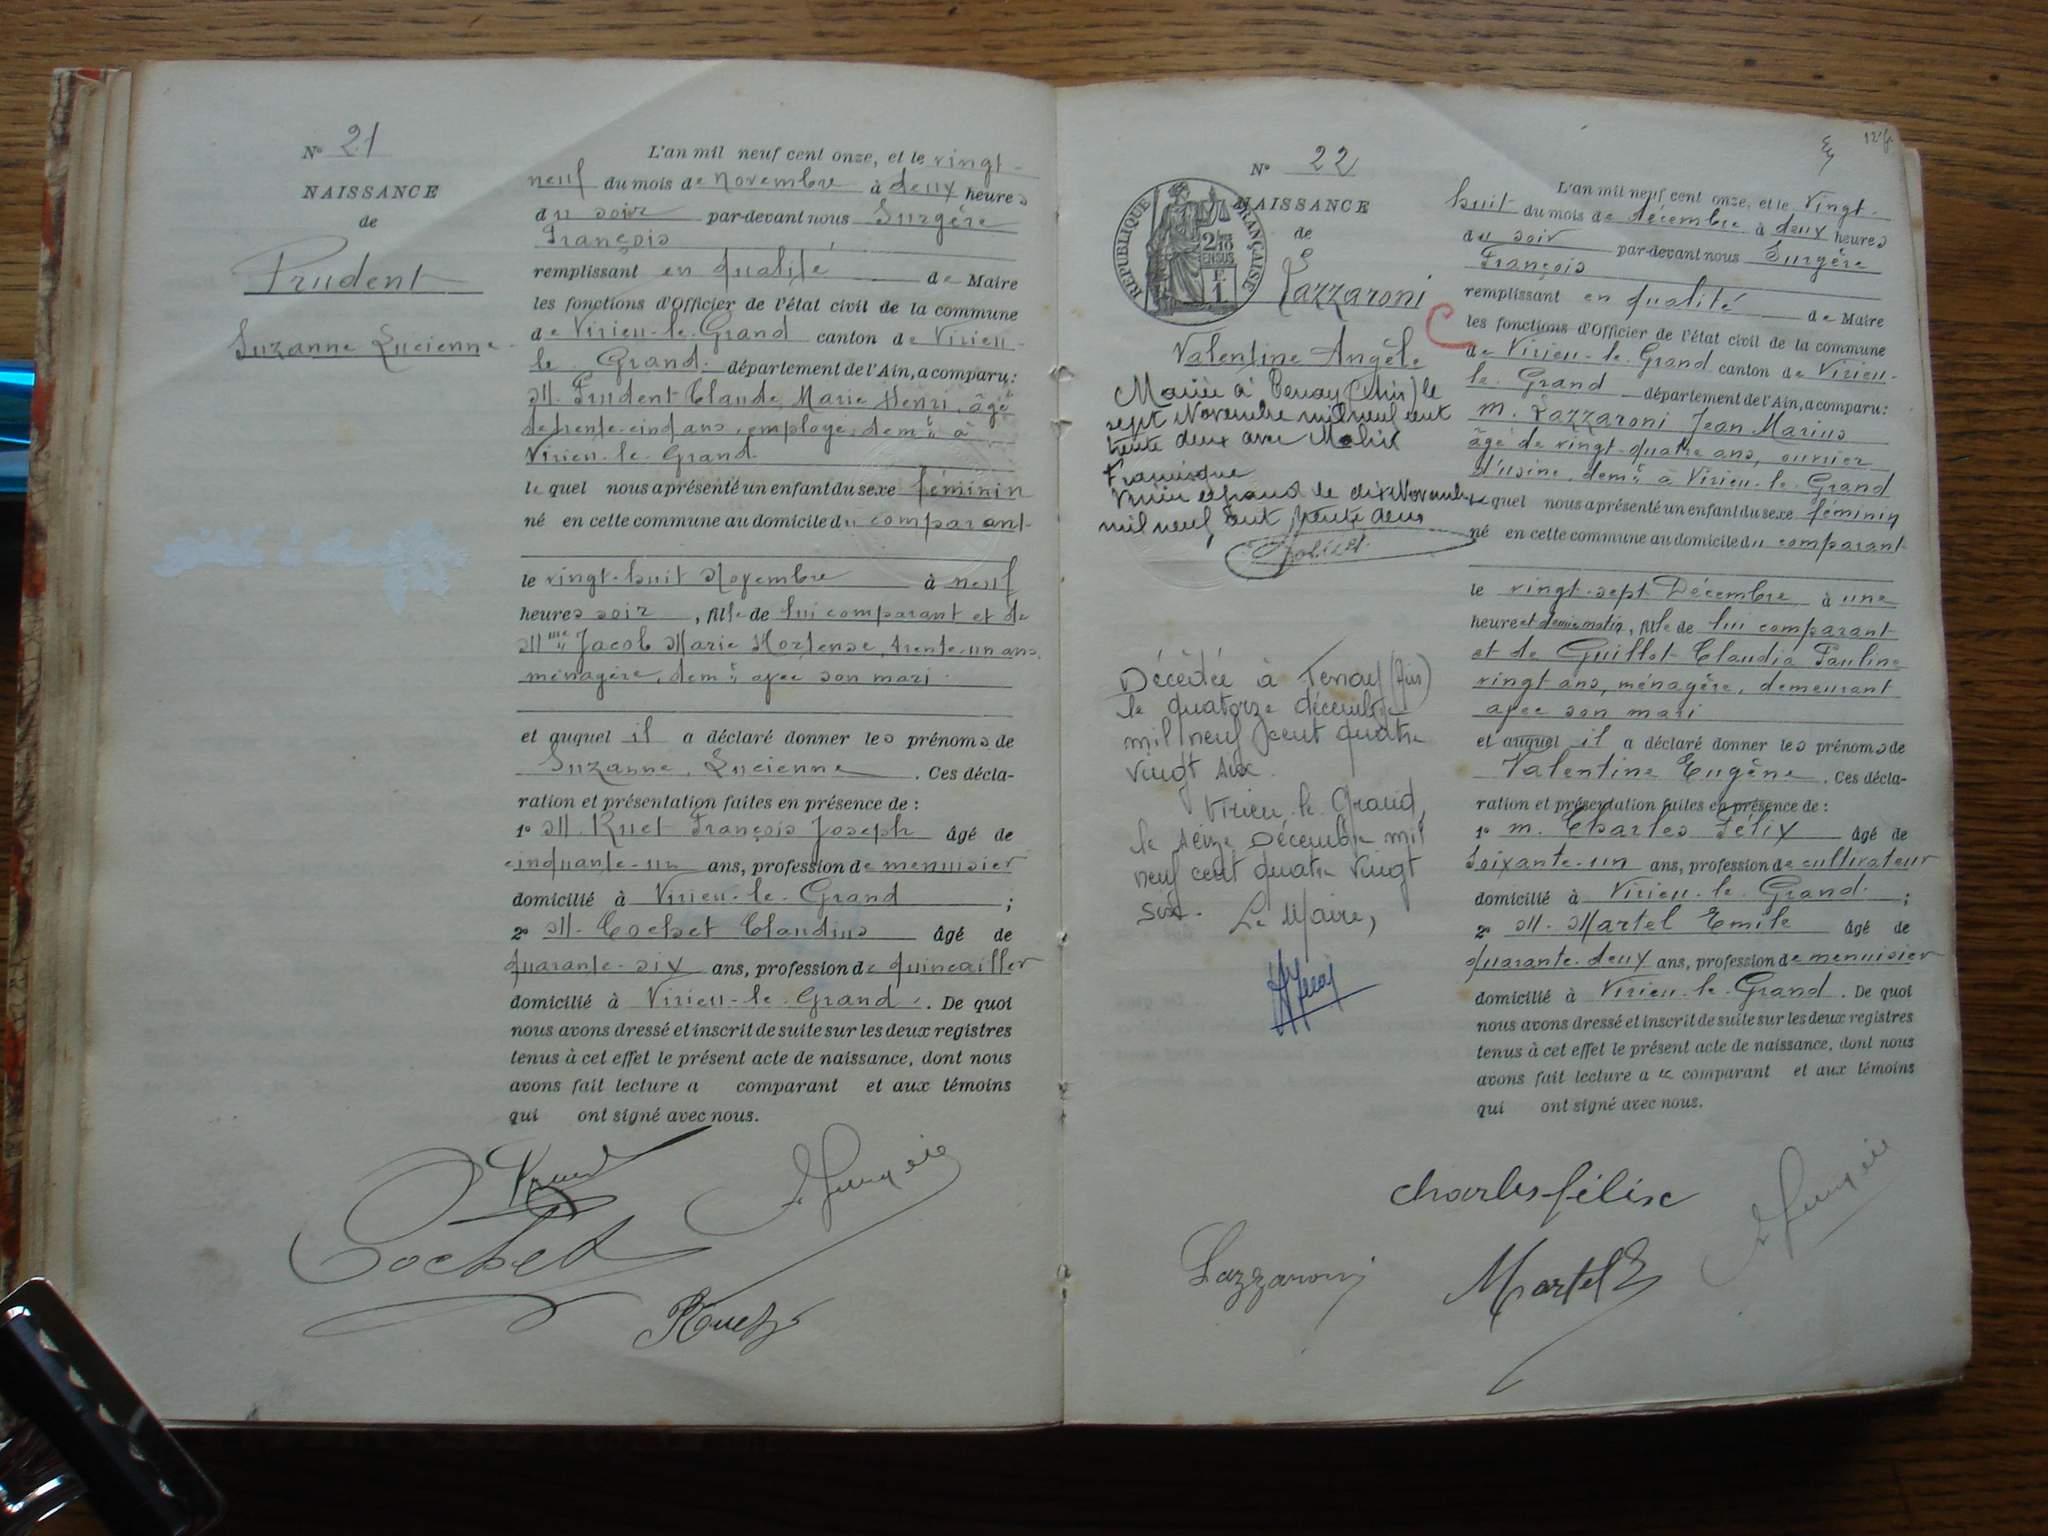 N° 21
NAISSANCE
de
Prudent
Suzanne Lucienne
L'an mil neuf cent onze, et le vingt-
neuf du mois de novembre à deux heures
du soir par-devant nous Surgère
François
remplissant en qualité de Maire
les fonctions d'Officier de l'état civil de la commune
de Virieu-le-Grand canton de Virieu-
le Grand département de l'Ain, a comparu:
M. Prudent Claude Marie Henri, âgé
de trente-cinq ans, employé, demt à
Virieu-le-Grand
lequel nous a présenté un enfant du sexe féminin
né en cette commune au domicile du comparant
le vingt-huit Novembre à neuf
heures soir, fille de lui comparant et de
Mme Jacob Marie Hortense, trente-un ans,
ménagère, demt avec son mari.
et auquel il a déclaré donner les prénoms de
Suzanne, Lucienne. Ces décla-
ration et présentation faites en présence de :
1° M. Ruet François Joseph âgé de
cinquante-un ans, profession de menuisier
domicilié à Virieu-le-Grand ;
2° M. Cochet Claudius âgé de
quarante-six ans, profession de quincailler
domicilié à Virieu-le-Grand. De quoi
nous avons dressé et inscrit de suite sur les deux registres
tenus à cet effet le présent acte de naissance, dont nous
avons fait lecture a comparant et aux témoins
qui ont signé avec nous.
Prudent
Surgère
Cochet
Ruet
12 f.
N° 22
NAISSANCE
de
RÉPUBLIQUE FRANÇAISE
2 10
EN SUS
F
1
Lazzaroni
Valentine Angèle
Mariée à Tenay (Ain) le
sept Novembre mil neuf cent
trente deux avec
Francisque
le dix Novembre
mil neuf cent trente deux
Décédée à Tenay (Ain)
le quatorze décembre
mil neuf cent quatre
vingt six.
Virieu-le-Grand,
le seize Décembre mil
neuf cent quatre vingt
six. Le Maire,
L'an mil neuf cent onze, et le vingt-
huit du mois de décembre à deux heures
du soir par-devant nous Surgère
François
remplissant en qualité de Maire
les fonctions d'Officier de l'état civil de la commune
de Virieu-le-Grand canton de Virieu-
le Grand département de l'Ain, a comparu:
M. Lazzaroni Jean Marius
âgé de vingt-quatre ans, ouvrier
d'usine, demt à Virieu-le-Grand
lequel nous a présenté un enfant du sexe féminin
né en cette commune au domicile du comparant
le vingt-sept Décembre à une
heure et demie matin, fille de lui comparant
et de Guillot Claudia Pauline
vingt ans, ménagère, demeurant
avec son mari
et auquel il a déclaré donner les prénoms de
Valentine Eugène. Ces décla-
ration et présentation faites en présence de :
1° M. Charles Félix âgé de
soixante-un ans, profession de cultivateur
domicilié à Virieu-le-Grand ;
2° M. Martel Emile âgé de
quarante-deux ans, profession de menuisier
domicilié à Virieu-le-Grand. De quoi
nous avons dressé et inscrit de suite sur les deux registres
tenus à cet effet le présent acte de naissance, dont nous
avons fait lecture a u comparant et aux témoins
qui ont signé avec nous.
Charles félix
Surgère
Lazzaroni
Martel E